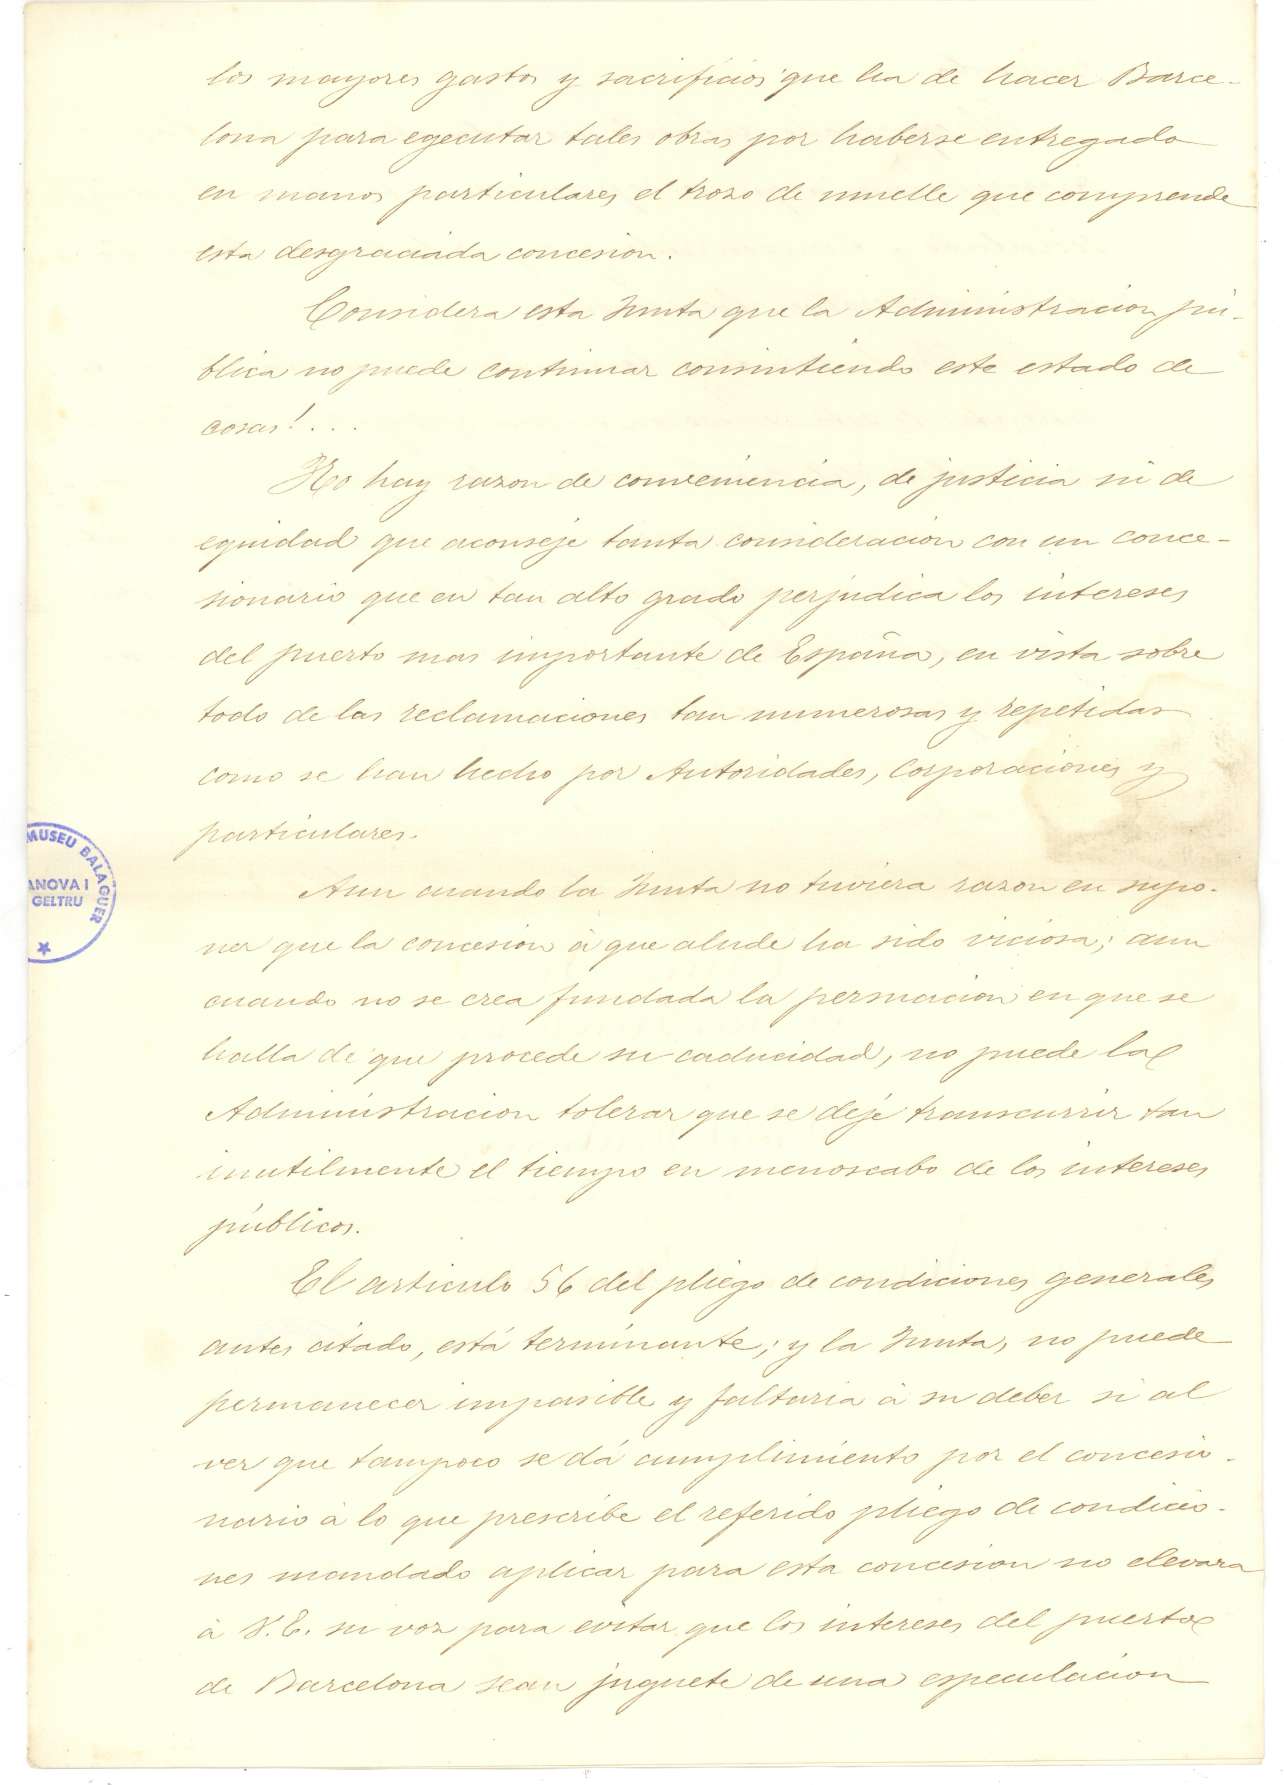 los mayores gastos y sacrificios que ha de hacer Barce-
lona para egecutar tales obras por haberse entregado
en manos particulares el trozo de muelle que comprende
esta desgraciada concesion.
Considera esta Junta que la Administracion pú-
blica no puede continuar consintiendo este estado de
cosas!...
No hay razon de conveniencia, de justicia ni de
equidad que aconseje tanta consideracion con un conce-
sionario que en tan alto grado perjudica los intereses
del puerto mas importante de España, en vista sobre
todo de las reclamaciones tan numerosas y repetidas
como se han hecho por Autoridades, Corporaciones y
particulares.
Aun cuando la Junta no tuviera razon en supo-
ner que la concesion á que alude ha sido viciosa; aun
cuando no se crea fundada la persuacion en que se
halla de que procede su caducidad, no puede la
Administracion tolerar que se deje transcurrir tan
inutilmente el tiempo en menoscabo de los intereses
públicos.
El articulo 56 del pliego de condiciones generales
antes citado, está terminante; y la Junta, no puede
permanecer impasible y faltaria á su deber si al
ver que tampoco se dá cumplimiento por el concesio-
nario á lo que prescribe el referido pliego de condicio-
nes mandado aplicar para esta concesion no elevara
á V.E. su voz para evitar que los intereses del puerto
de Barcelona sean juguete de una especulacion
MUSEU BALAGUER
ANOVA I
GELTRU